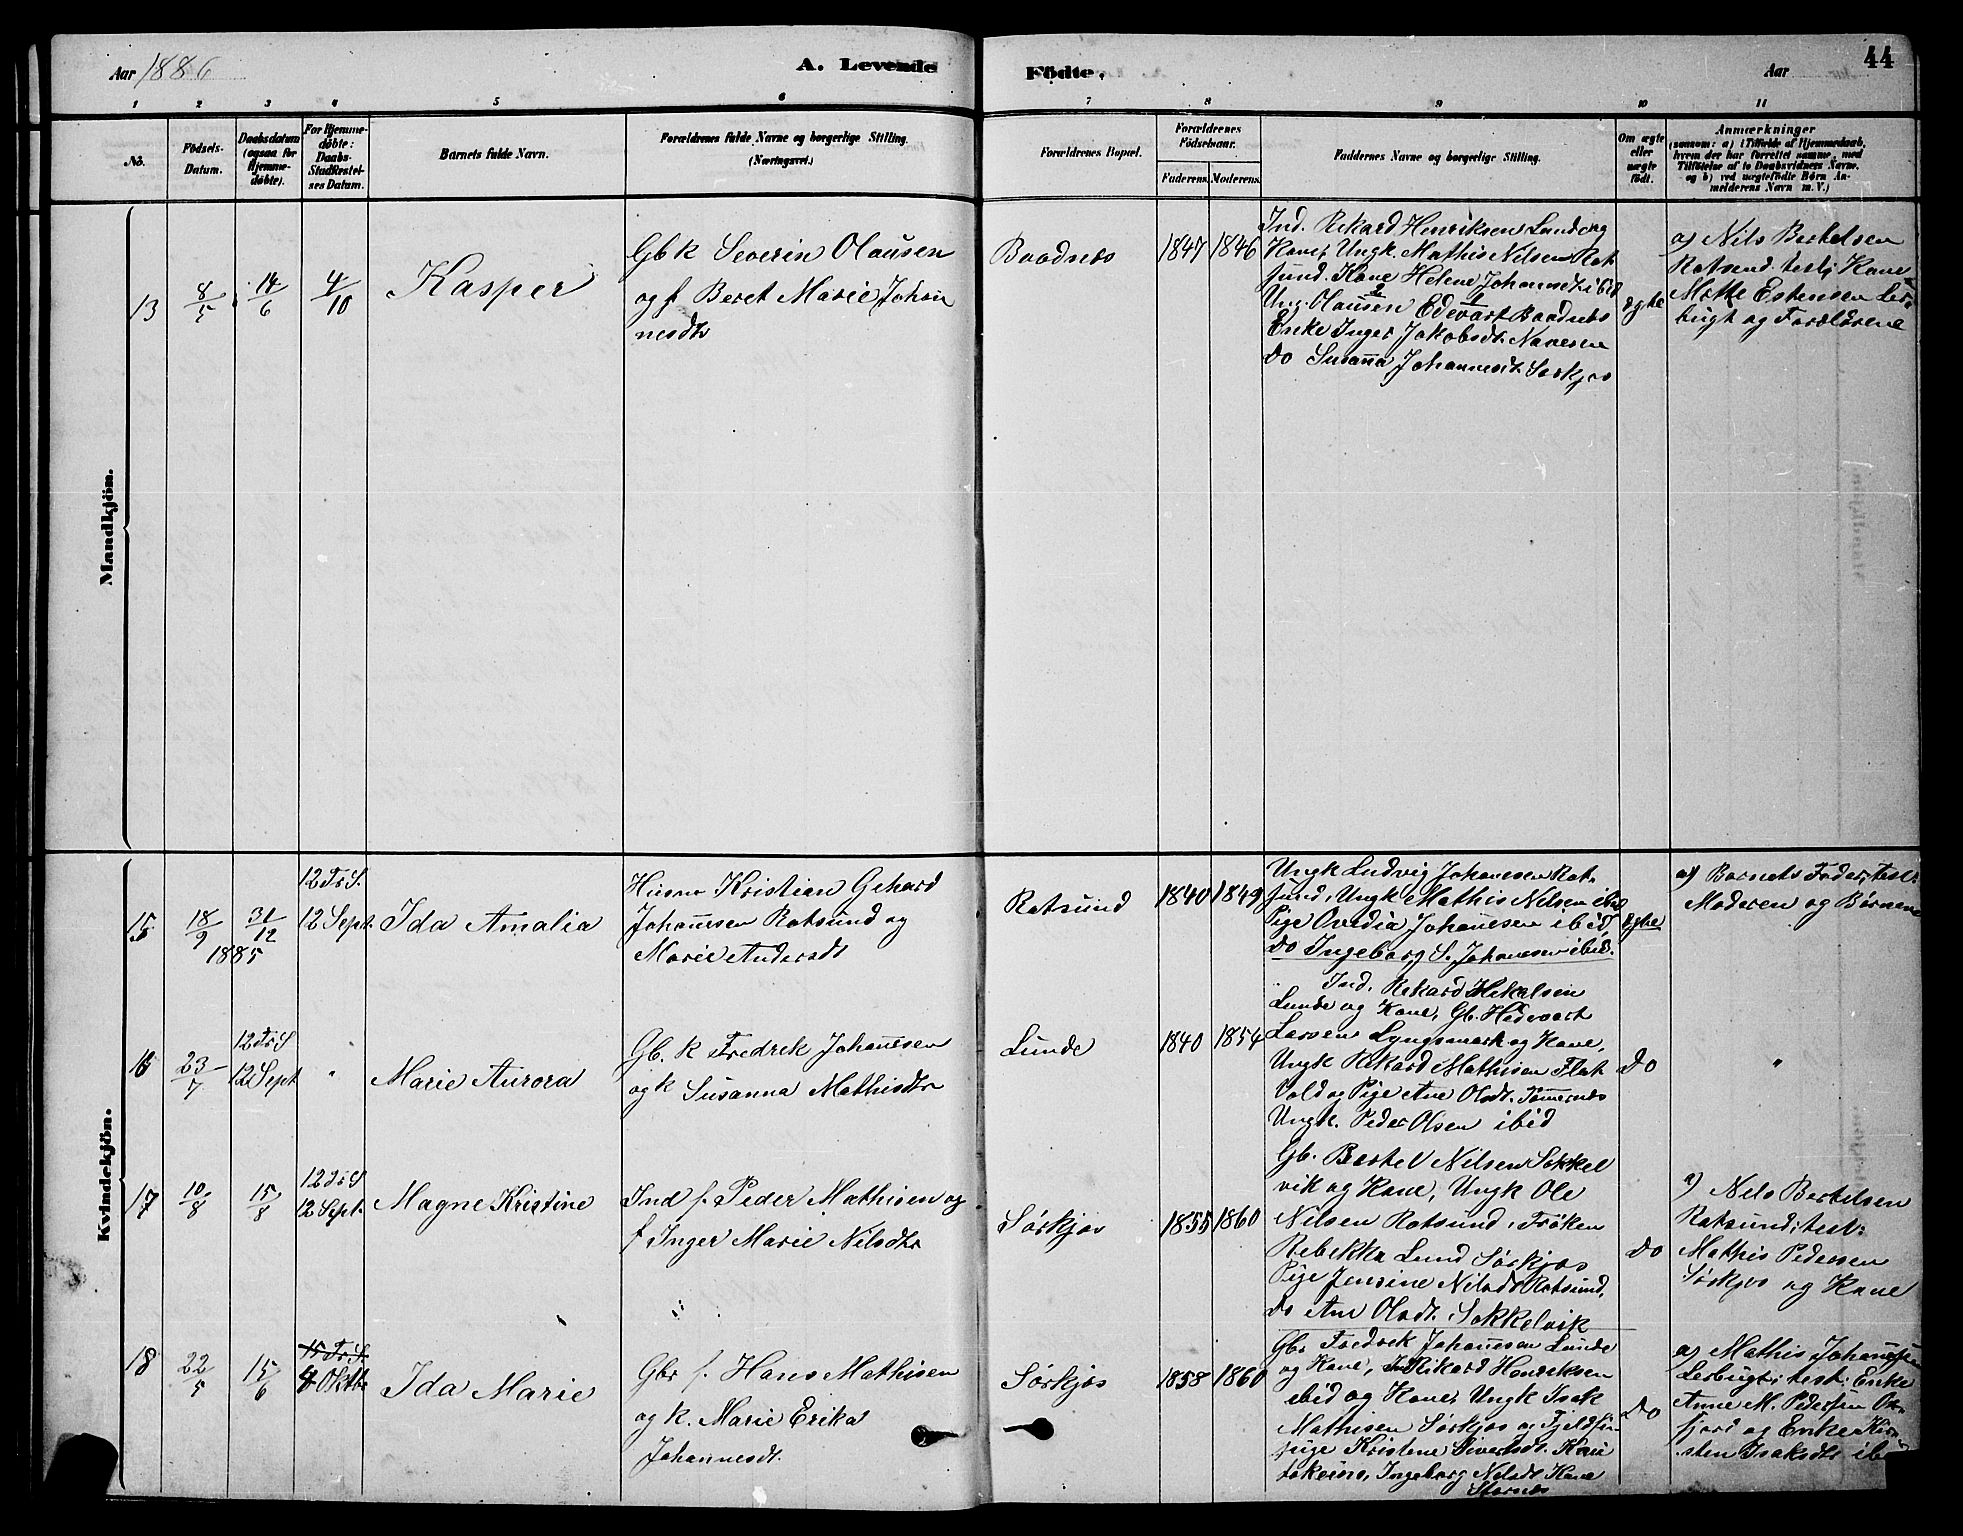 Aar 1886
A. Levende
Födte.
Aar
44
1 2 3 4 5 6 7 8 9 10 11
No.
Födsels-
Datum.
Daabsdatum
(ogsaa for
Hjemme-
döbte).
For Hjemme-
döbte:
Daabs-
Stadfæstel-
ses Datum.
Barnets fulde Navn.
Forældrenes fulde Navne og borgerlige Stilling.
(Næringsvei.)
Forældrenes Bopæl.
Forældrenes
Födselsaar.
Faderens.
Moderens.
Faddernes Navne og borgerlige Stilling.
Om ægte
eller
uægte
födt.
Anmærkninger
(saasom: a) i Tilfælde af Hjemmedaab,
hvem der har forrettet samme, med
Tilföielse af to Daabsvidners Navne,
og b) ved uægtefödte Börn An-
melderens Navn m. V.)
Mandkjön.
13
8/5
14/6
4/10
Kasper
Gb k Severin Olausen
og f Beret Marie Johan
nesdtr
Baadnes
1847
1846
Ind. Rikard Henriksen Lund og
Kone, Ungk. Mathis Nilsen Rot
sund. Kone Helene Johannesdt. ibid
Ung. Olausen Edevart Baadnes
Enke Inger Jakobsdt.
do Susanna Johannesdt. Sørkjos
ægte
a) Nils Bertelsen
Rotsund. test; Kone
Estensen Ler-
bugt og Forældrene
Kvindekjön.
15
18/9
31/12
1885
12 Tr S.
12 Sept.
Ida Amalia
Kristian Gehard
Johannesen Rotsund og
Marie Andersdt
Rotsund
1840
1849
Ungk Ludvig Johanesen Rot-
sund, Ungk Mathis Nilsen ibid
Pige Ovedia Johanesen ibid,
do Ingeborg S. Johanesen ibid.
ægte
a) Barnets Fader, test:
Moderen og Børnene
16
23/7
12 Tr S
12 Sept
"
Marie Aurora
Gb. k Fredrek Johannesen
og k Susanna Mathisdtr
Lunde
1840
1854
Ind. Rikard
Lunde og Kone, Gb. Hedevart
Larsen Lyngsmark og Kone,
Ungk Rikard Mathisen Flat
Vold og Pige Ane Olsdt.
Ungk. Peder Olsen ibid
do
"
17
10/8
15/8
12 Tr S
12 Sept.
Magne Kristine
Ind f. Peder Mathisen og
f Inger Marie Nilsdtr
Sørkjos
1855
1860
Gb. Bertel Nilsen Sokkel
vik og Kone, Ungk Ole
Nilsen Rotsund, Frøken
Rebekka Lund Sørkjos
Pige Jensine Nilsdt Rotsund,
do Ane Olsdt. Sokkelvik
do
a) Nils Bertelsen
Rotsund; test:
Mathis Pedersen
Sørkjos og Kone
18
22/5
15/6
15 Tr S.
Oktbr
Ida Marie
Gbr f. Hans Mathisen
og k. Marie Erika
Johannesdt.
Sørkjos
1858
1860
Gbr Fredrek Johannesen Lunde
og Kone, Ind Rikard Henriksen
ibid og Kone, Ungk Isak
Mathisen Sørkjos og
pige Kristene Sivertsdt. Kau
tokeino, Ingeborg Nilsdt Kone
Stornes
do
a) Mathis Johannesen
Lerbugt; test: Enke
Anne M. Pedersen Ox-
fjord og Enke Kir-
sten Isaksdtr